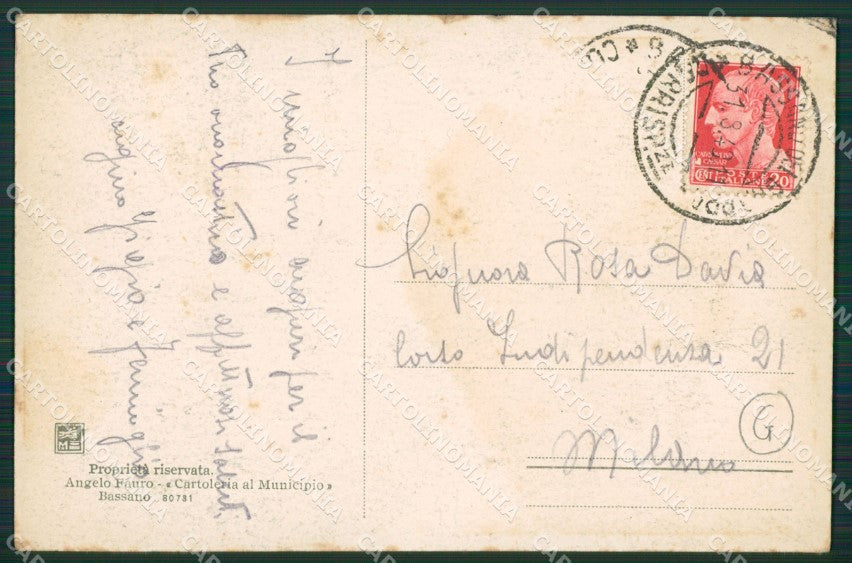 I migliori auguri per il
Tuo onomastico e affettuosi saluti
cugina Gigia e famiglia
Signora Rosa Davià
Corso Indipendenza 21
Milano
G
POSTE ITALIANE
CENT 20
Proprietà riservata.
Angelo Fauro - «Cartoleria al Municipio»
Bassano 80731
CARTOLINOMANIA